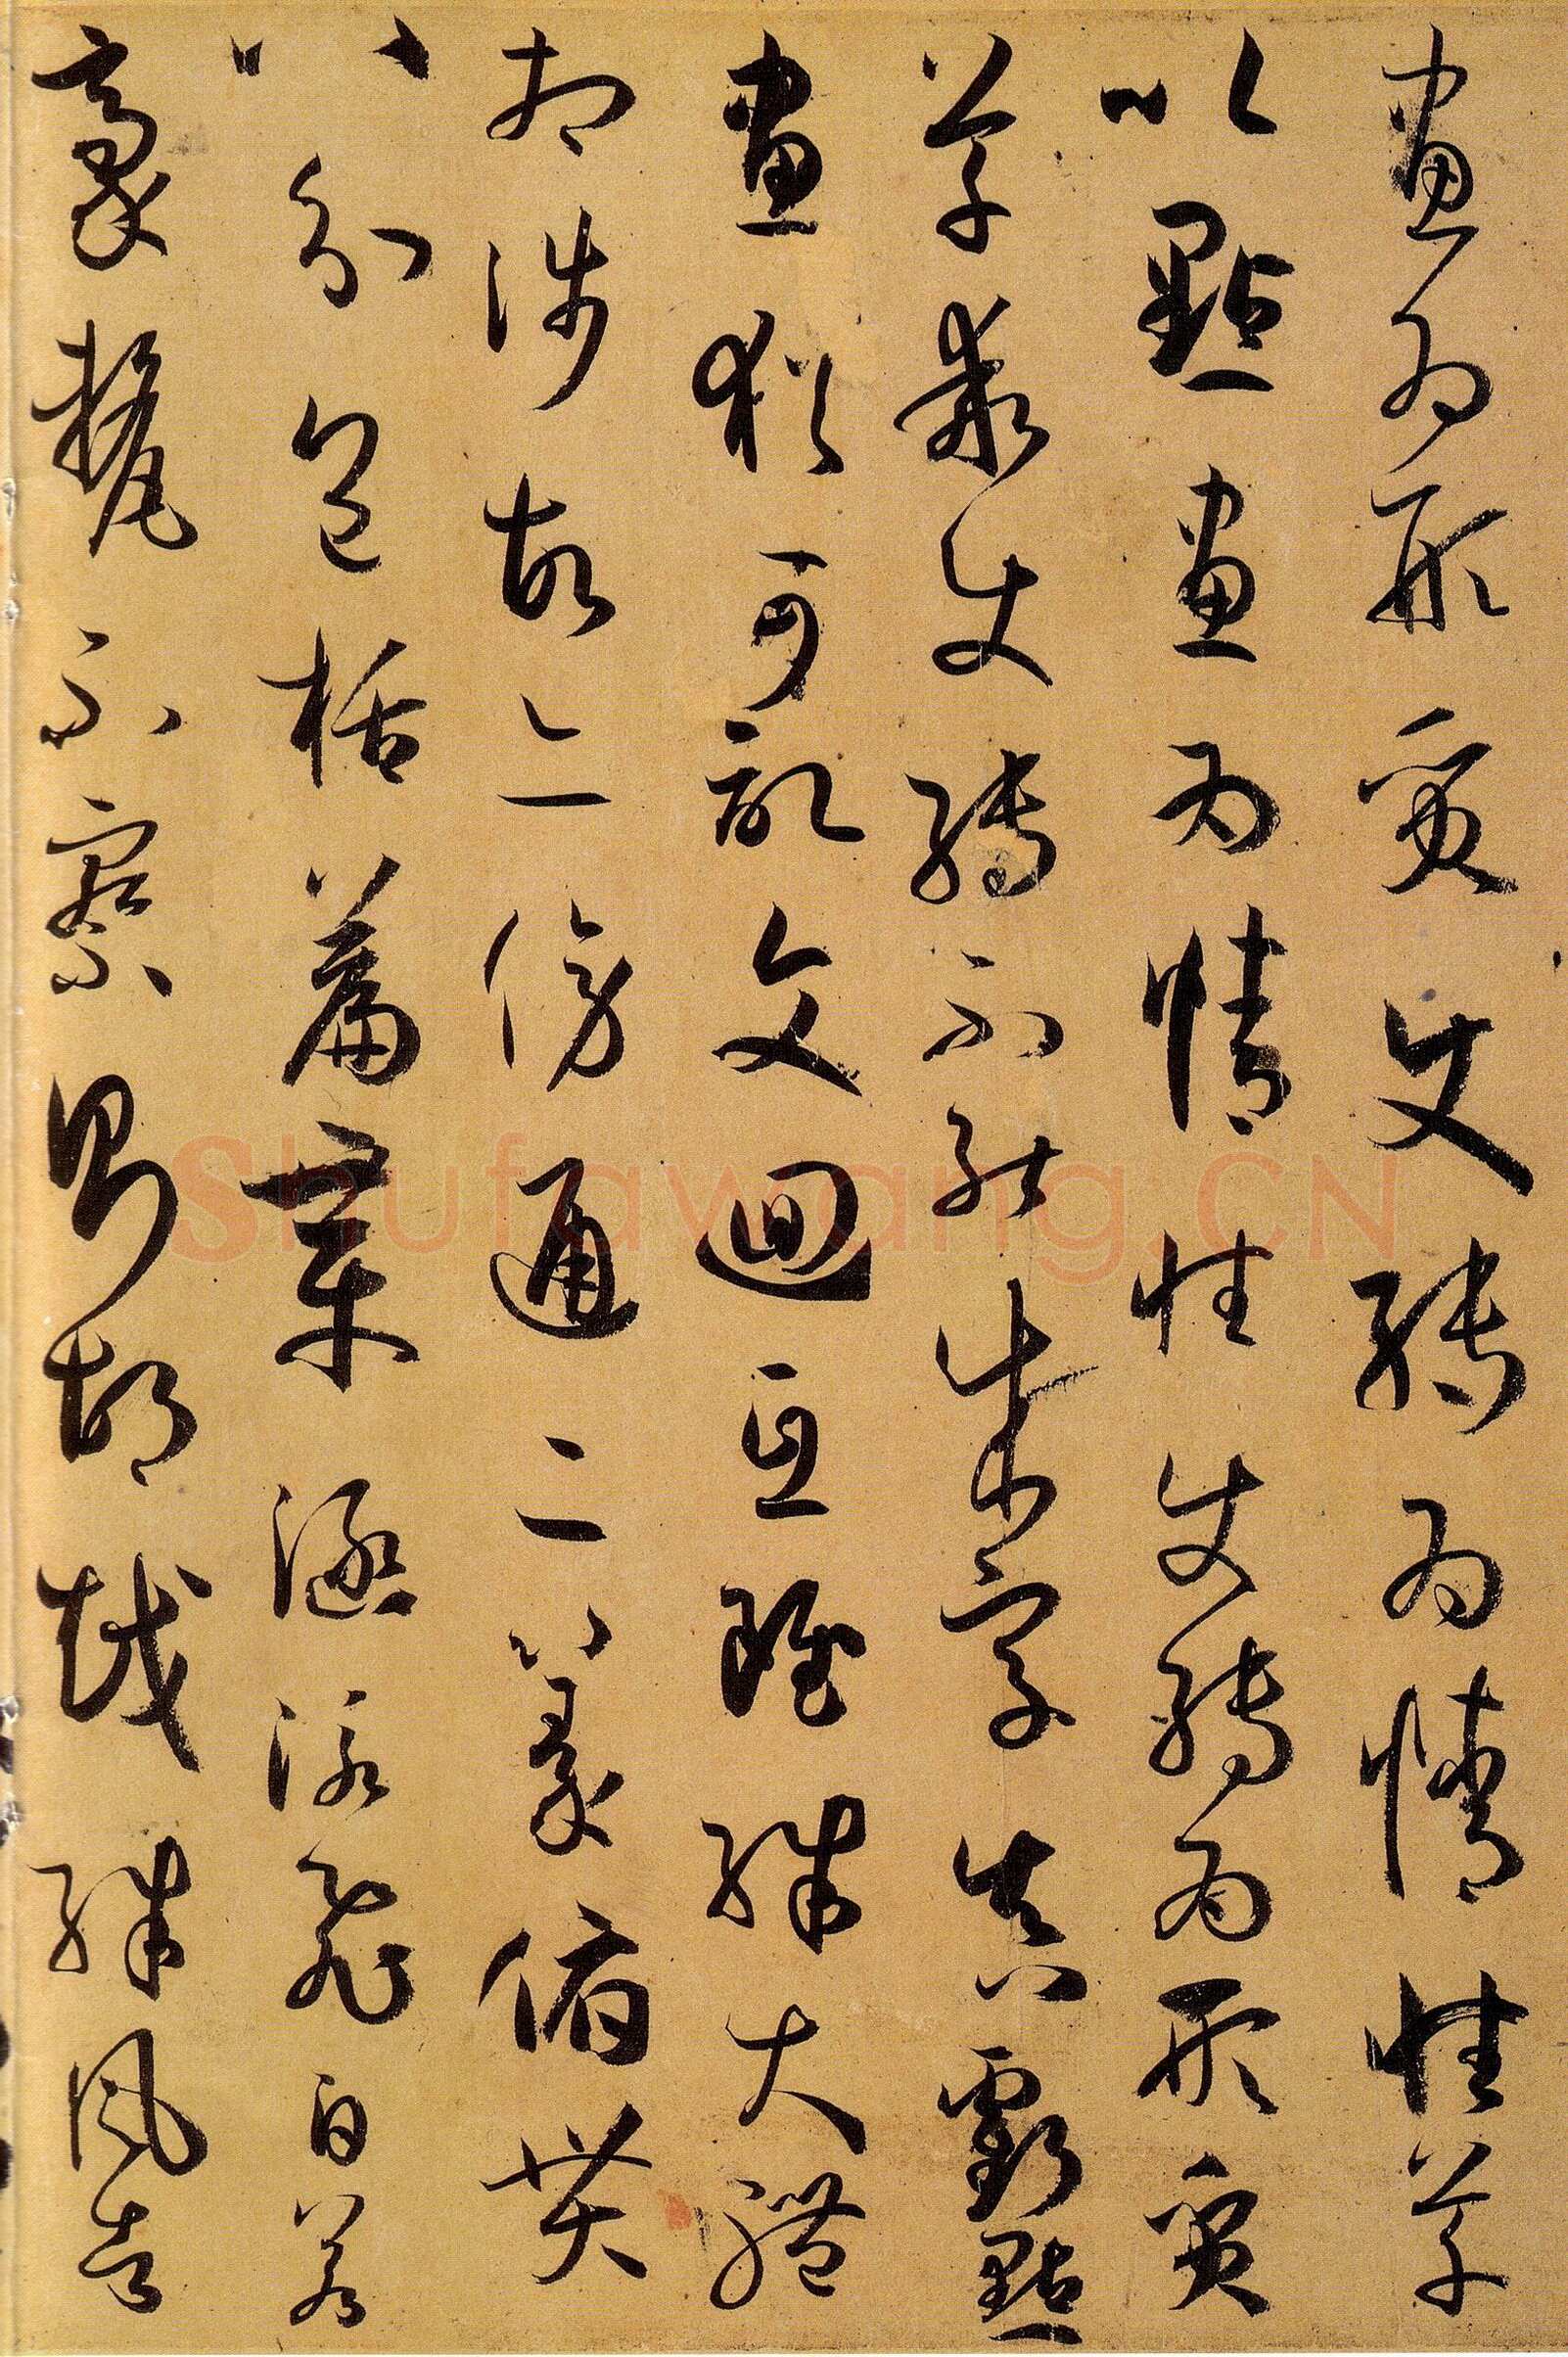 畫為形質使轉為情性草
以點畫為情性使轉為形質
草乖使轉不能成字真虧點
畫猶可記文迴互雖殊大體
相涉故亦傍通二篆俯貫
八分包括篇章涵泳飛白若
豪氂不察則胡越殊風者
Shufawang.CN